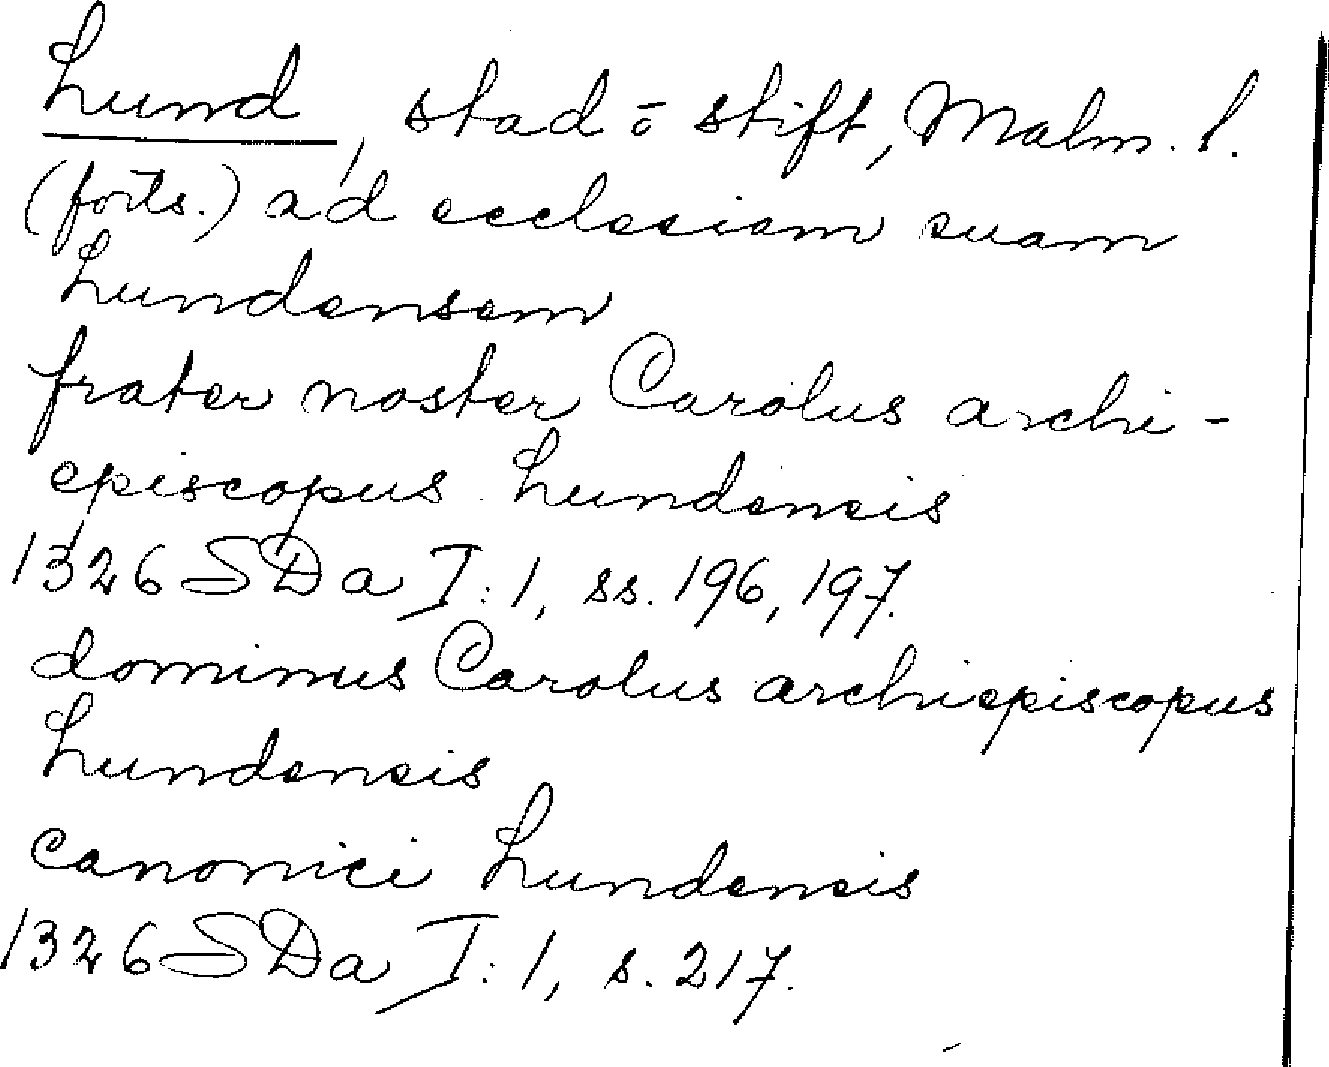 Lund, stad o stift, Malm. l.
(forts.) ad ecclesiam suam
Lundensem
frater noster Carolus archi-
episcopus Lundensis
1326 SDa I:1, ss. 196, 197.
dominus Carolus archiepiscopus
Lundensis
canonici Lundensis
1326 SDa I:1, s. 217.